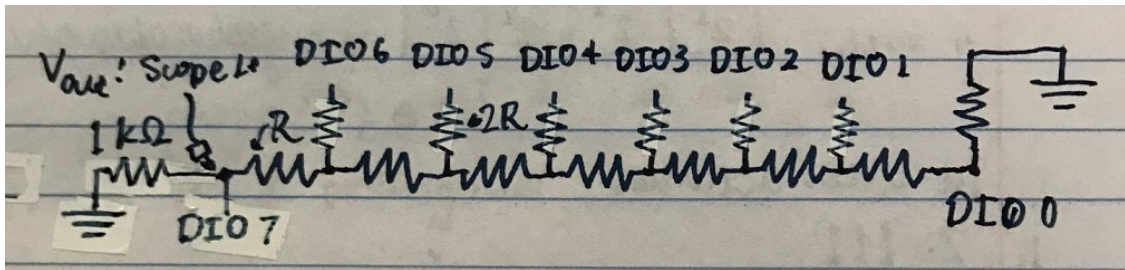 Vout: Scope 1+
DIO6 DIO5 DIO4 DIO3 DIO2 DIO1
1 kΩ
R
2R
DIO7
DIO0